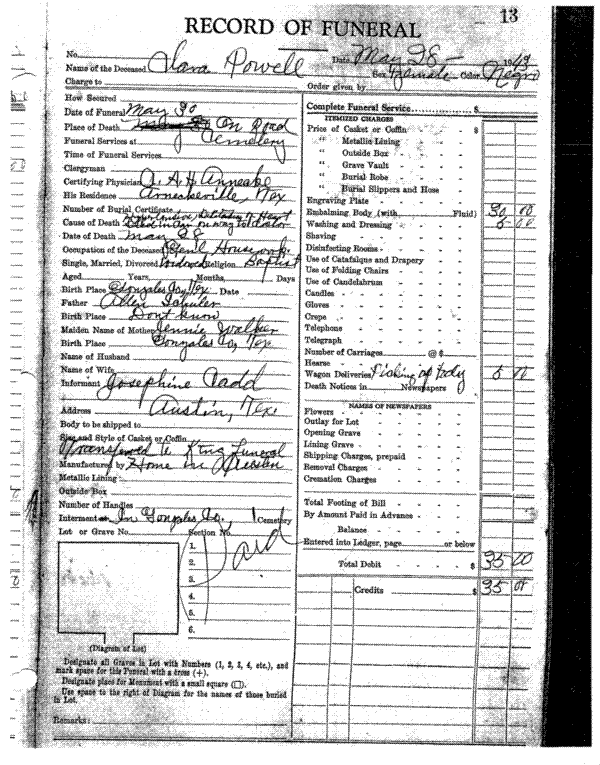 13
RECORD OF FUNERAL
No.
Date May 28 - 1943
Name of the Deceased Clara Powell
Sex Female Color Negro
Charge to
Order given by
How Secured
Date of Funeral May 30
Place of Death On Road
Funeral Services at Cemetery
Time of Funeral Services
Clergyman
Certifying Physician A. A. H. Annecke
His Residence Arneckeville, Tex
Number of Burial Certificate
Cause of Death of Heart
Died in on way to Doctor
Date of Death May 28
Occupation of the Deceased Housework
Single, Married, Divorced Widowed Religion Baptist
Aged Years, Months, Days
Birth Place Gonzales Co, Tex Date
Father Allen
Birth Place Dont know
Maiden Name of Mother Jennie Walker
Birth Place Gonzales Co, Tex
Name of Husband
Name of Wife
Informant Josephine Ladd
Address Austin, Tex.
Body to be shipped to
Size and Style of Casket or Coffin
Transfered to King Funeral
Manufactured by Home in Austin
Metallic Lining
Outside Box
Number of Handles
Interment In Gonzales Co. Cemetery
Lot or Grave No. Section No.
Paid
1.
2.
3.
4.
5.
6.
(Diagram of Lot)
Designate all Graves in Lot with Numbers (1, 2, 3, 4, etc.), and
mark space for this Funeral with a cross (+).
Designate place for Monument with a small square (□).
Use space to the right of Diagram for the names of those buried
in Lot.
Remarks:
Complete Funeral Service $
ITEMIZED CHARGES
Price of Casket or Coffin $
" Metallic Lining
" Outside Box
" Grave Vault
" Burial Robe
" Burial Slippers and Hose
Engraving Plate
Embalming Body (with Fluid) 30 00
Washing and Dressing 5 00
Shaving
Disinfecting Rooms
Use of Catafalque and Drapery
Use of Folding Chairs
Use of Candelabrum
Candles
Gloves
Crepe
Telephone
Telegraph
Number of Carriages @ $
Hearse
Wagon Deliveries Picking up Body 5 00
Death Notices in Newspapers
NAMES OF NEWSPAPERS
Flowers
Outlay for Lot
Opening Grave
Lining Grave
Shipping Charges, prepaid
Removal Charges
Cremation Charges
Total Footing of Bill
By Amount Paid in Advance
Balance
Entered into Ledger, page or below
Total Debit $ 35 00
Credits $ 35 00